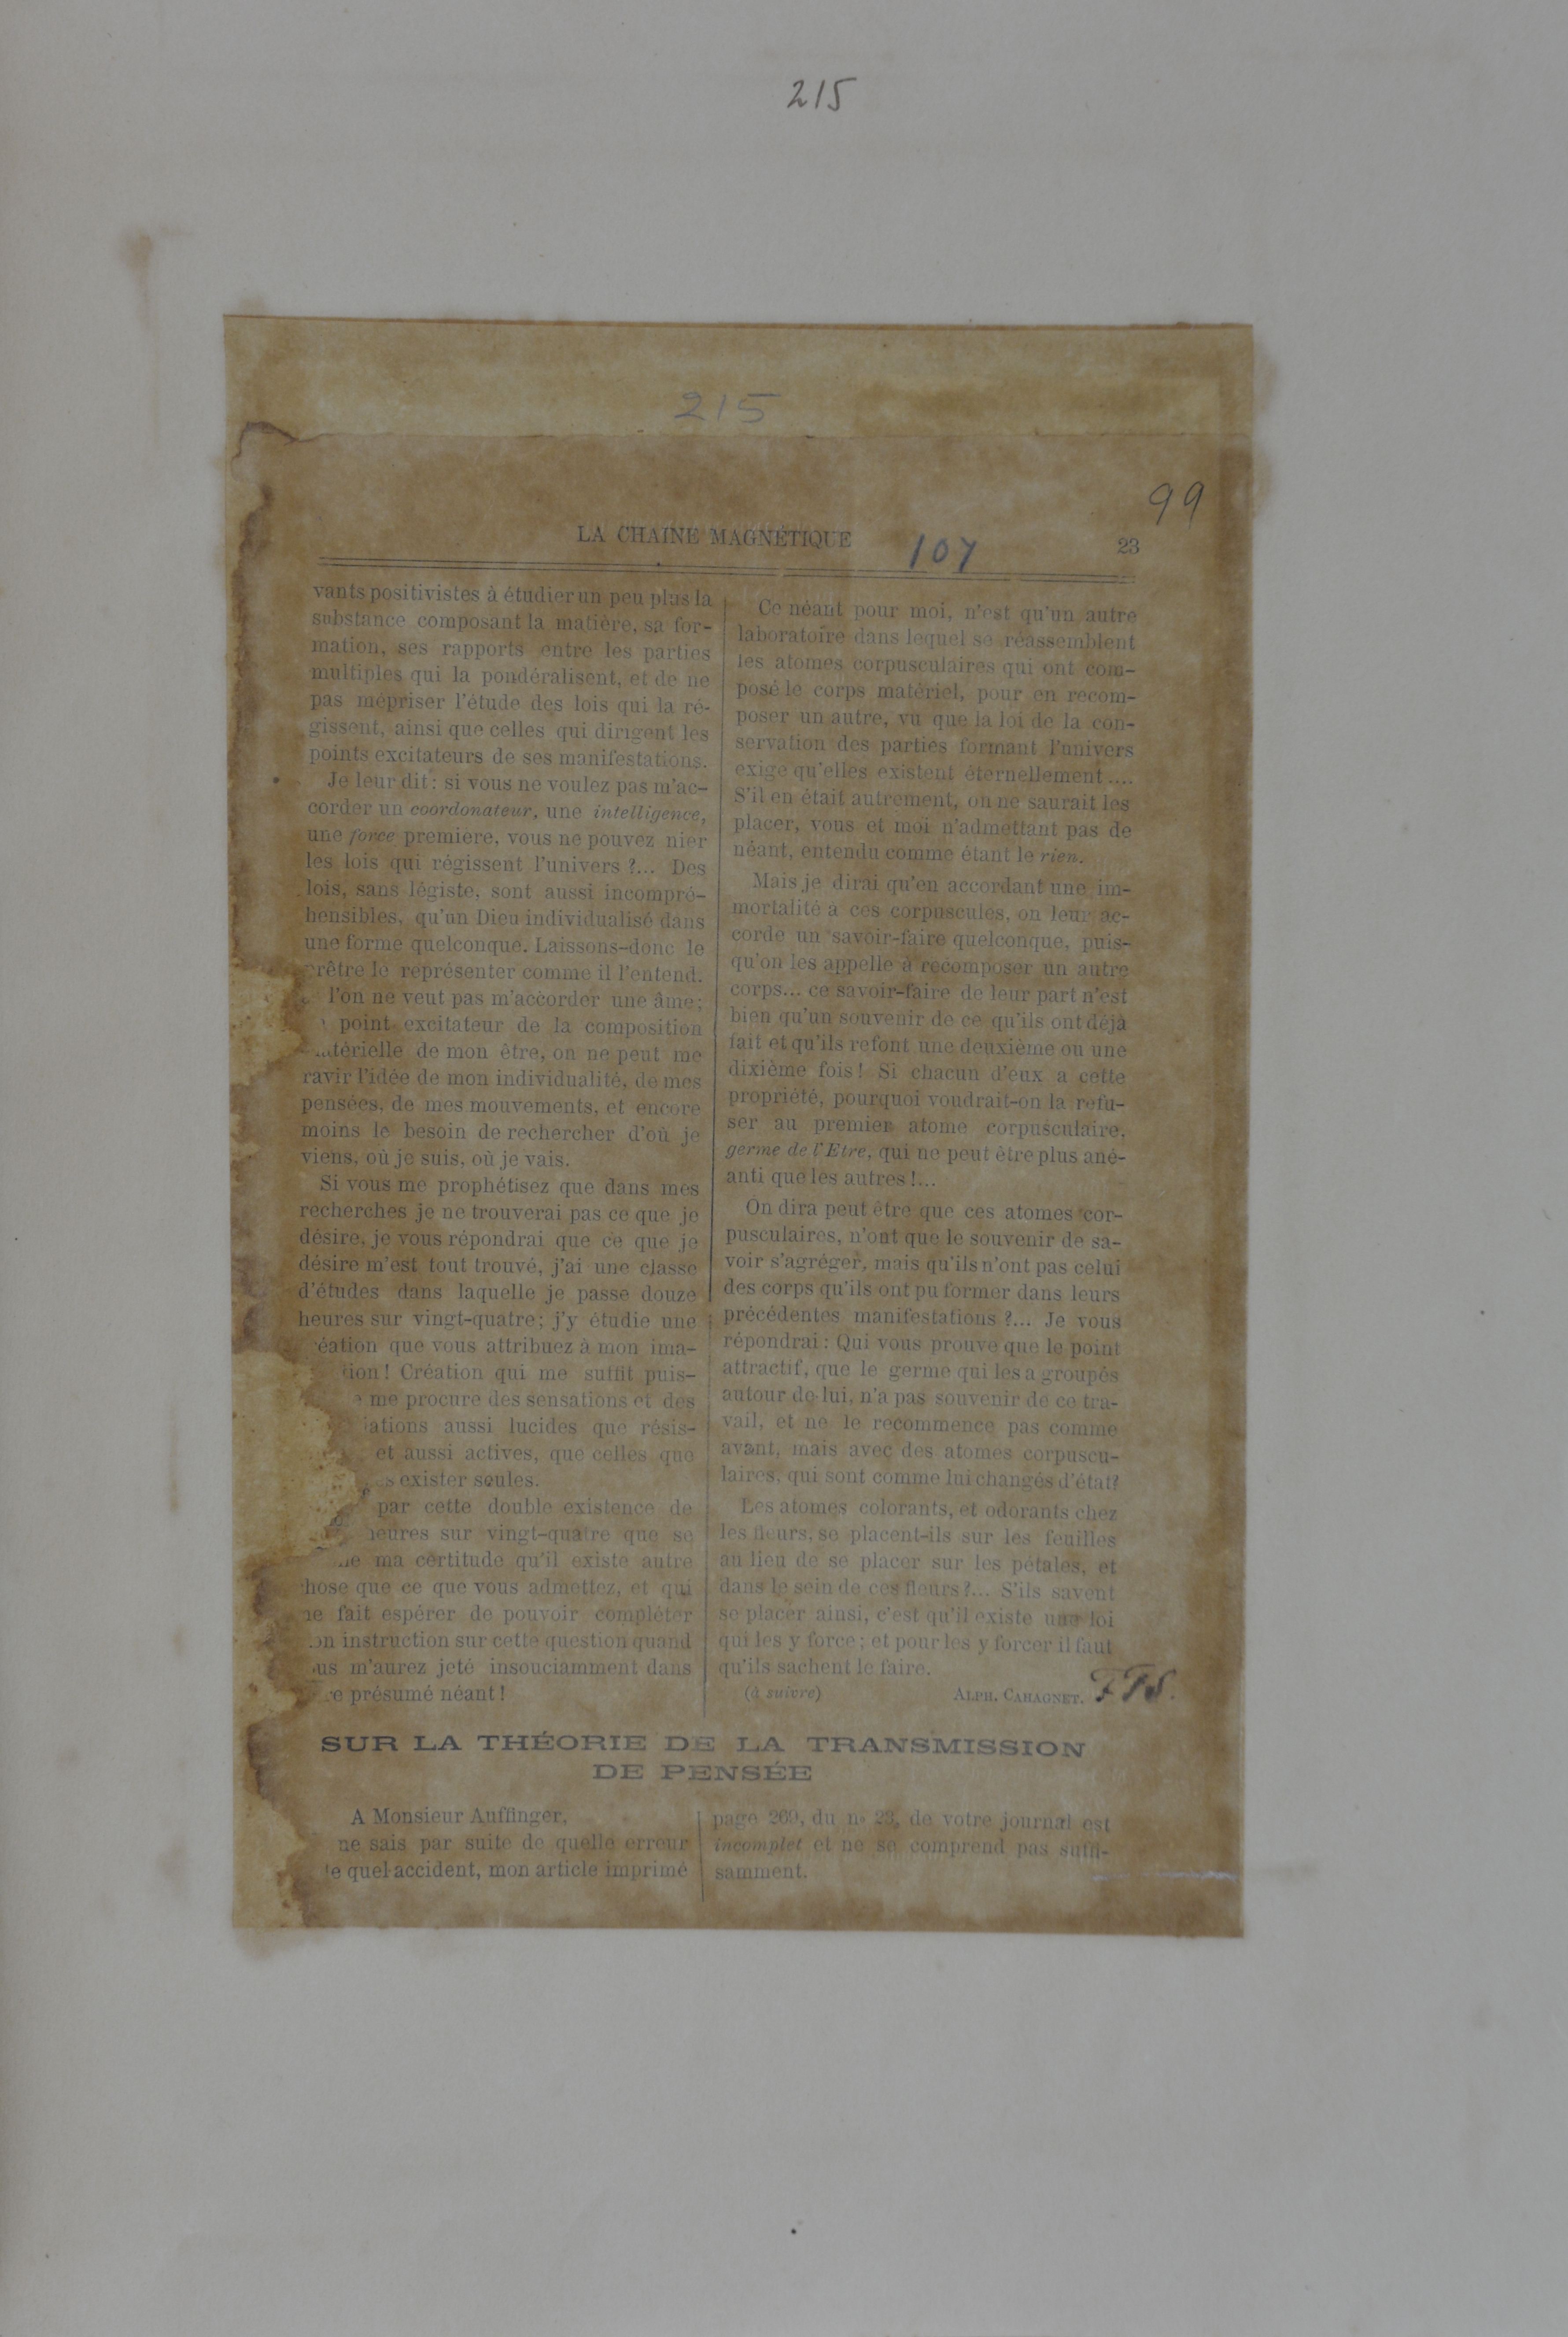 215
215
99
LA CHAINE MAGNÉTIQUE
107
23
vants positivistes à étudier un peu plus la
substance composant la matière, sa for-
mation, ses rapports entre les parties
multiples qui la pondéralisent, et de ne
pas mépriser l'étude des lois qui la ré-
gissent, ainsi que celles qui dirigent les
points excitateurs de ses manifestations.
Je leur dit : si vous ne voulez pas m'ac-
corder un coordonateur, une intelligence,
une force première, vous ne pouvez nier
les lois qui régissent l'univers ?... Des
lois, sans légiste, sont aussi incompré-
hensibles, qu'un Dieu individualisé dans
une forme quelconque. Laissons-donc le
rêtre le représenter comme il l'entend.
l'on ne veut pas m'accorder une âme;
point excitateur de la composition
térielle de mon être, on ne peut me
ravir l'idée de mon individualité, de mes
pensées, de mes mouvements, et encore
moins le besoin de rechercher d'où je
viens, où je suis, où je vais.
Si vous me prophétisez que dans mes
recherches je ne trouverai pas ce que je
désire, je vous répondrai que ce que je
désire m'est tout trouvé, j'ai une classe
d'études dans laquelle je passe douze
heures sur vingt-quatre; j'y étudie une
éation que vous attribuez à mon ima-
tion ! Création qui me suffit puis-
me procure des sensations et des
iations aussi lucides que résis-
et aussi actives, que celles que
es exister seules.
par cette double existence de
heures sur vingt-quatre que se
ma certitude qu'il existe autre
hose que ce que vous admettez, et qui
ne fait espérer de pouvoir compléter
on instruction sur cette question quand
us m'aurez jeté insouciamment dans
re présumé néant !
Ce néant pour moi, n'est qu'un autre
laboratoire dans lequel se réassemblent
les atomes corpusculaires qui ont com-
posé le corps matériel, pour en recom-
poser un autre, vu que la loi de la con-
servation des parties formant l'univers
exige qu'elles existent éternellement....
S'il en était autrement, on ne saurait les
placer, vous et moi n'admettant pas de
néant, entendu comme étant le rien.
Mais je dirai qu'en accordant une im-
mortalité à ces corpuscules, on leur ac-
corde un savoir-faire quelconque, puis-
qu'on les appelle à recomposer un autre
corps... ce savoir-faire de leur part n'est
bien qu'un souvenir de ce qu'ils ont déjà
fait et qu'ils refont une deuxième ou une
dixième fois ! Si chacun d'eux a cette
propriété, pourquoi voudrait-on la refu-
ser au premier atome corpusculaire,
germe de l'Etre, qui ne peut être plus ané-
anti que les autres !...
On dira peut être que ces atomes cor-
pusculaires, n'ont que le souvenir de sa-
voir s'agréger, mais qu'ils n'ont pas celui
des corps qu'ils ont pu former dans leurs
précédentes manifestations ?... Je vous
répondrai : Qui vous prouve que le point
attractif, que le germe qui les a groupés
autour de lui, n'a pas souvenir de ce tra-
vail, et ne le recommence pas comme
avant, mais avec des atomes corpuscu-
laires, qui sont comme lui changés d'état?
Les atomes colorants, et odorants chez
les fleurs, se placent-ils sur les feuilles
au lieu de se placer sur les pétales, et
dans le sein de ces fleurs ?... S'ils savent
se placer ainsi, c'est qu'il existe une loi
qui les y force ; et pour les y forcer il faut
qu'ils sachent le faire.
(à suivre) ALPH. CAHAGNET. FTS.
SUR LA THÉORIE DE LA TRANSMISSION
DE PENSÉE
A Monsieur Auffinger,
ne sais par suite de quelle erreur
e quel accident, mon article imprimé
page 269, du n° 23, de votre journal est
incomplet et ne se comprend pas suffi-
samment.